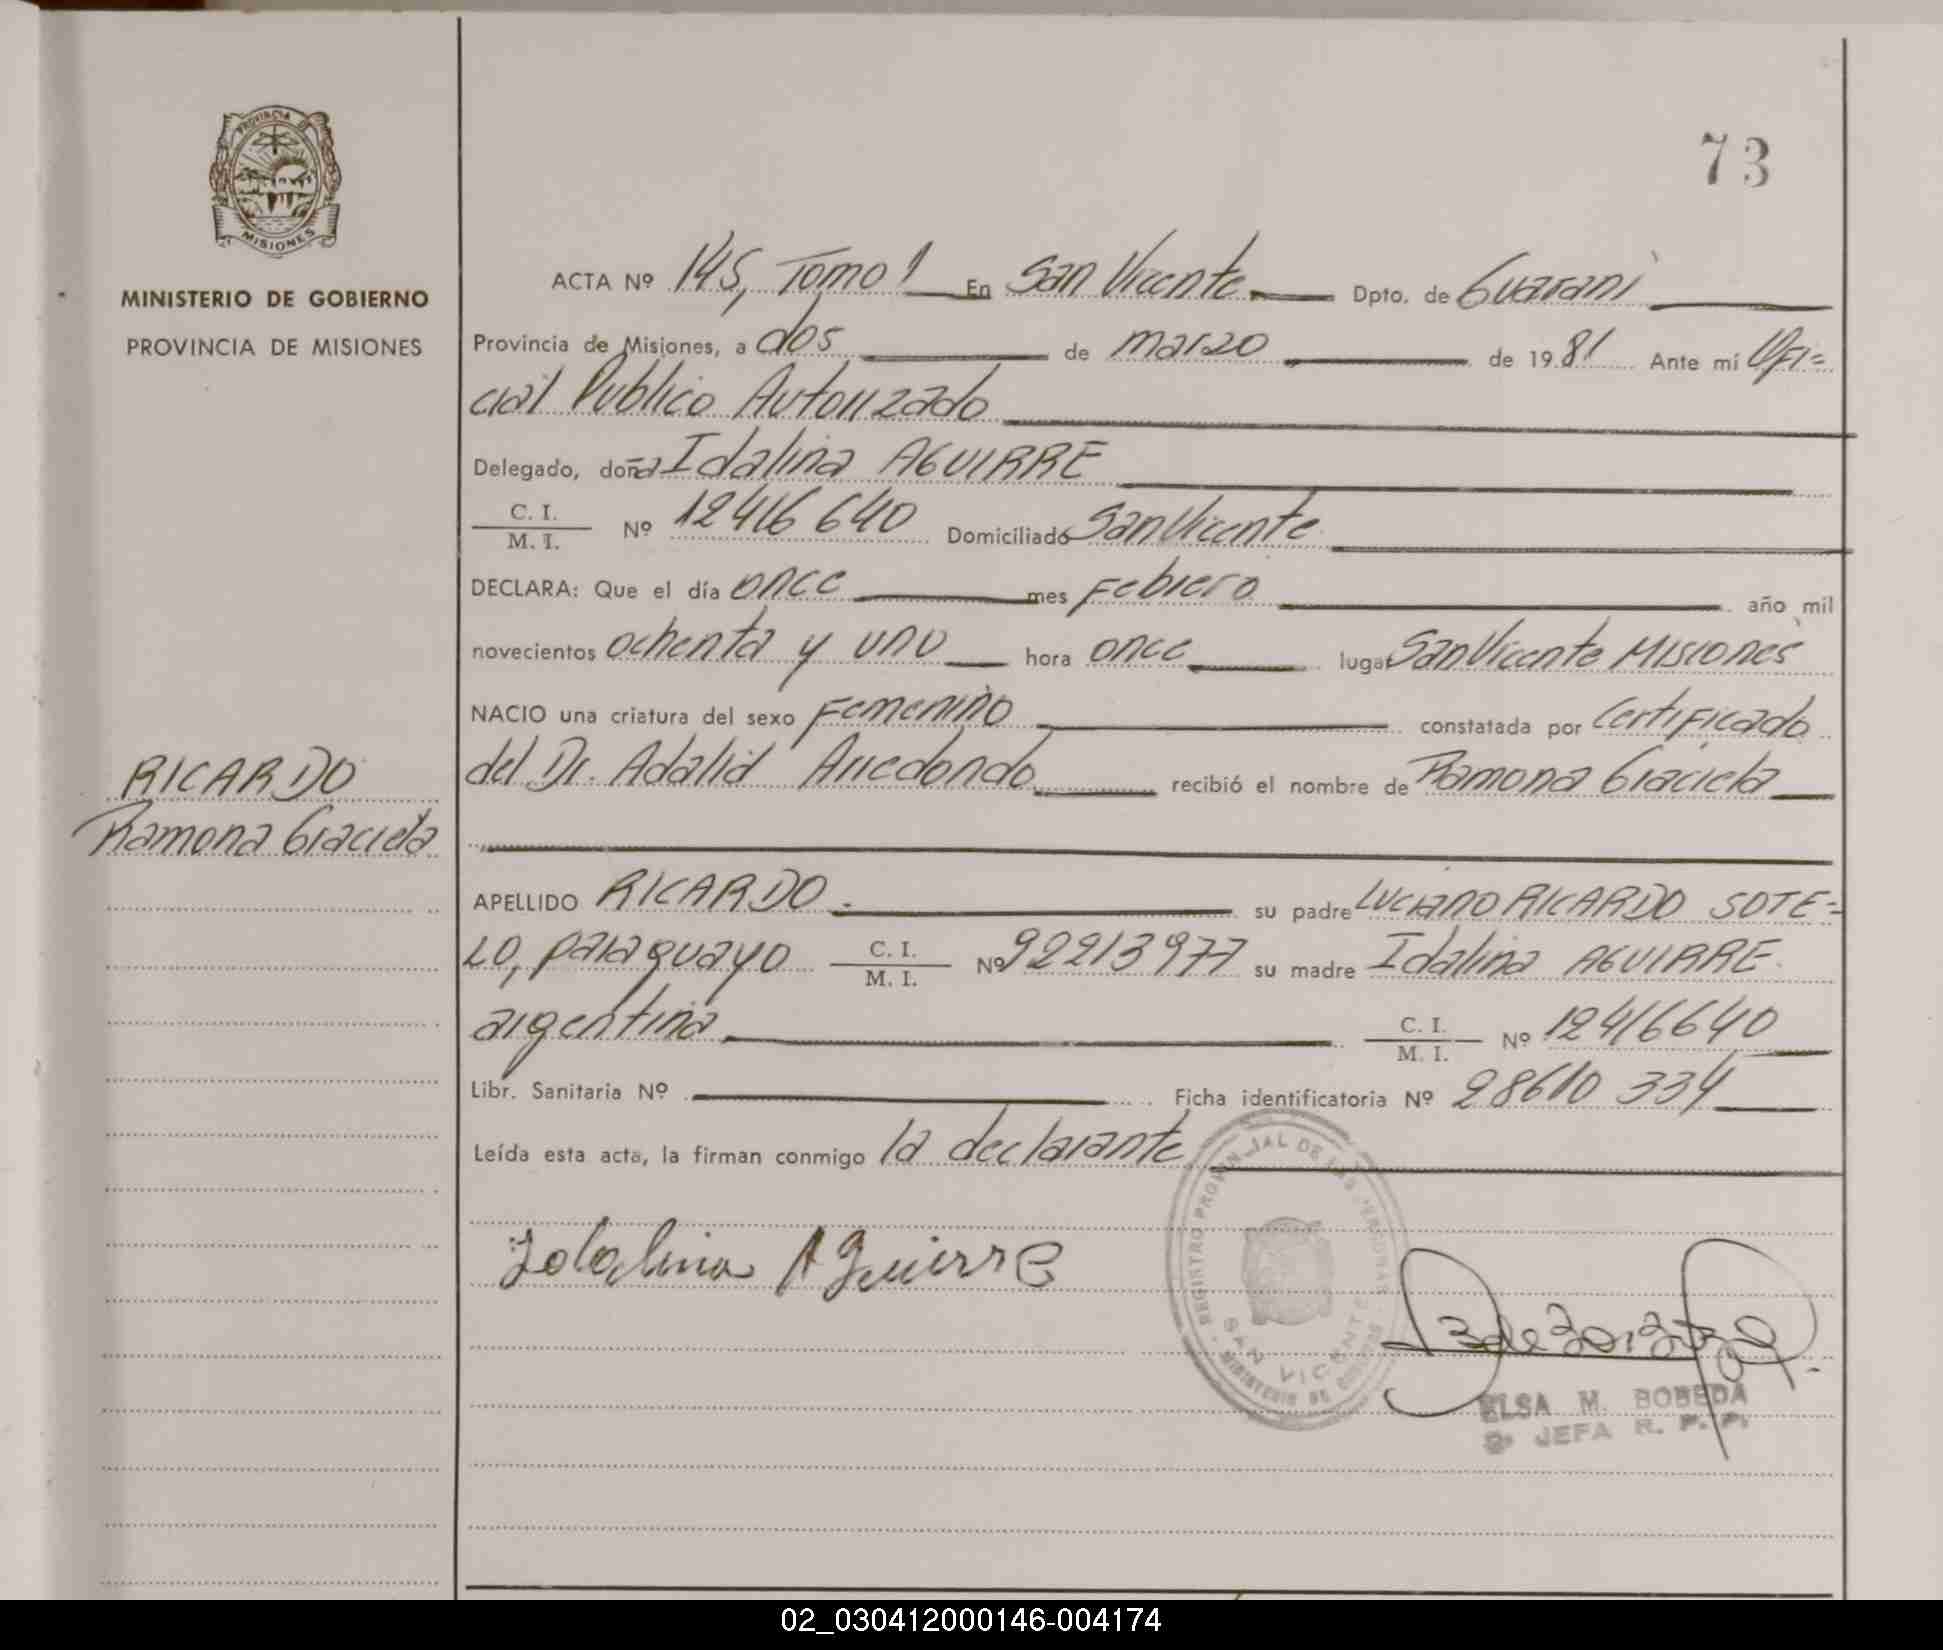 73
PROVINCIA DE
MISIONES
MINISTERIO DE GOBIERNO
PROVINCIA DE MISIONES
ACTA Nº 145, Tomo 1 En San Vicente Dpto. de Guaraní
Provincia de Misiones, a dos de marzo de 1981 Ante mí Ofi=
cial Publico Autorizado
Delegado, doña Idalina AGUIRRE
C. I.
M. I. Nº 12416640 Domiciliado San Vicente
DECLARA: Que el día once mes Febrero año mil
novecientos ochenta y uno hora once lugar San Vicente Misiones
NACIO una criatura del sexo Femenino constatada por Certificado
del Dr. Adalid Arredondo recibió el nombre de Ramona Graciela
RICARDO
Ramona Graciela
APELLIDO RICARDO. su padre LUCIANO RICARDO SOTE=
LO, paraguayo C. I.
M. I. Nº 92213977 su madre Idalina AGUIRRE
argentina C. I.
M. I. Nº 12416640
Libr. Sanitaria Nº Ficha identificatoria Nº 28610 334
Leída esta acta, la firman conmigo la declarante
Idalina Aguirre
REGISTRO PROVINCIAL DE LAS PERSONAS
SAN VICENTE
MINISTERIO DE GOBIERNO
ELSA M. BOBEDA
JEFA R. P. P.
02_030412000146-004174